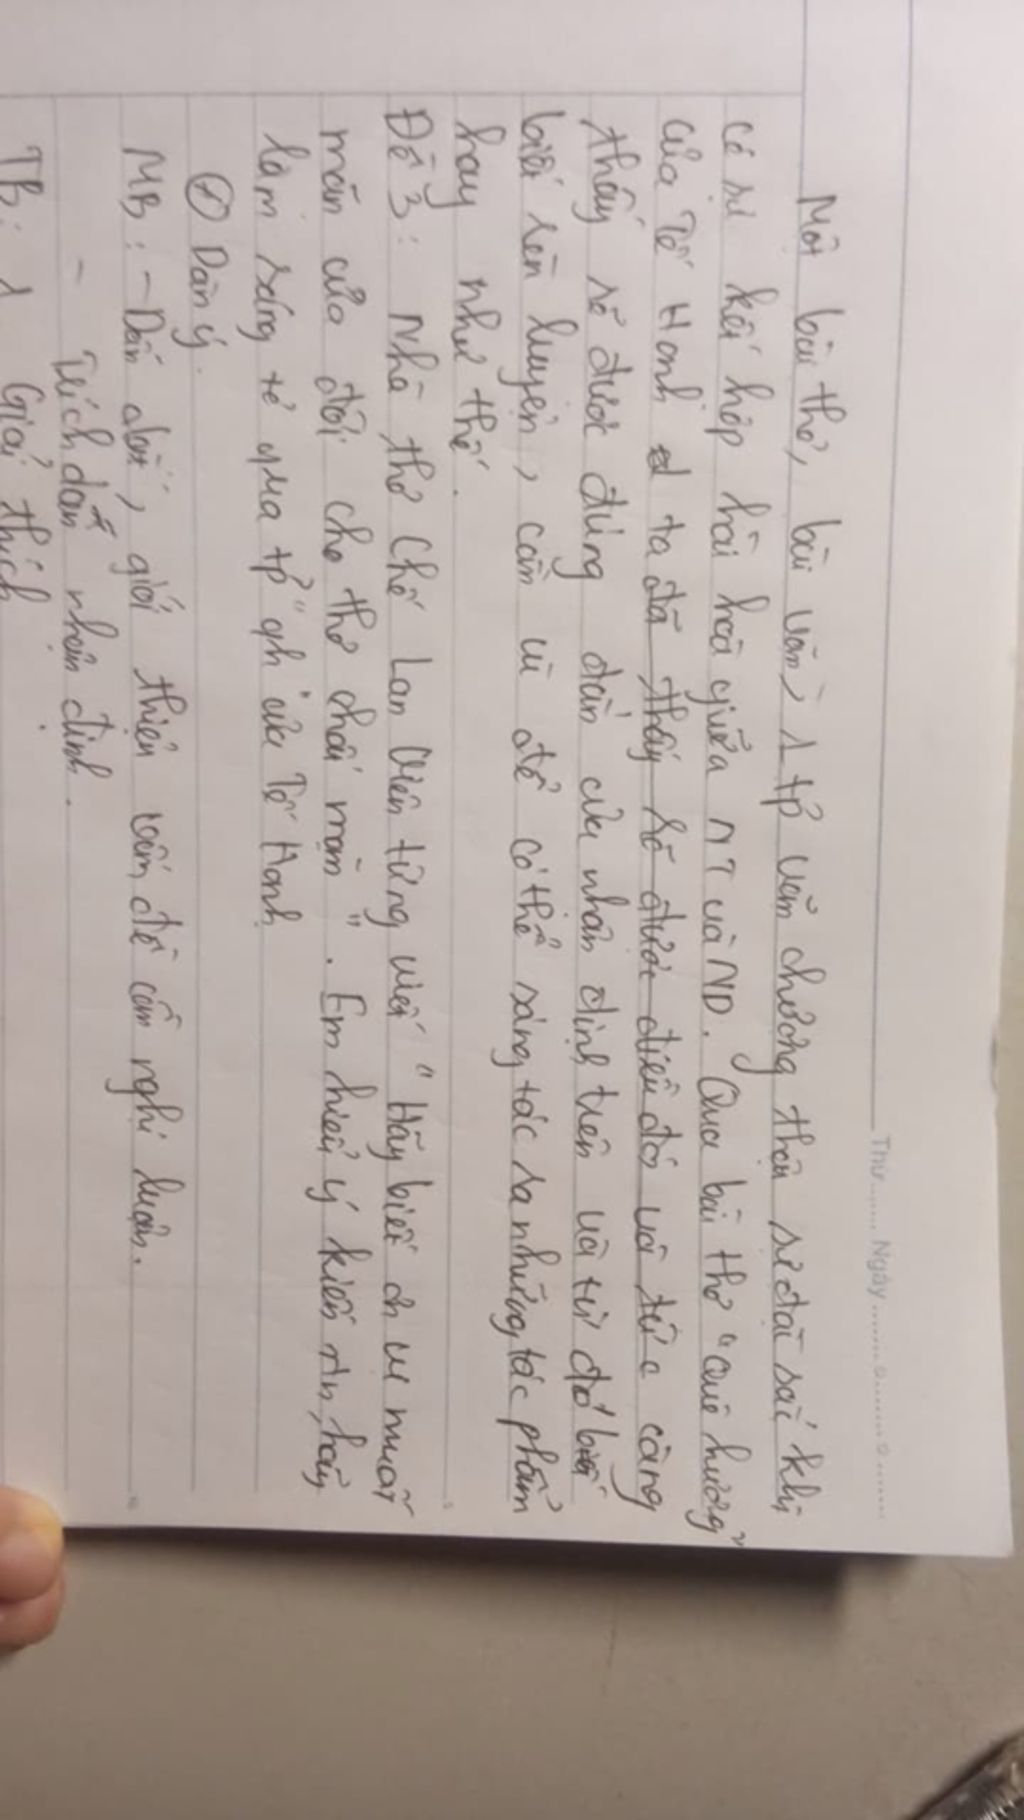 Thứ........ Ngày ........ o ........ o ........
Một bài thơ, bài văn, 1 tp văn chương thơ sẽ đặc sắc khi
có sự kết hợp hài hoà giữa NT và ND. Qua bài thơ "Quê hương"
của Tế Hanh ta đã thấy rõ được điều đó và từ càng
thấy rõ được đúng đắn của nhận định trên và từ đó biết
biết rèn luyện, cần vì để có thể sáng tác ra những tác phẩm
hay như thế.
Đề 3: Nhà thơ Chế Lan Viên từng viết "Hãy biết ơn vị muối
mặn của đời cho thơ chất mặn". Em hiểu ý kiến ntn, hãy
làm sáng tỏ qua tp "qh" của Tế Hanh
+ Dàn ý.
MB: - Dẫn dắt, giới thiệu vấn đề cần nghị luận.
- Trích dẫn nhận định.
TB: 1 Giải thích